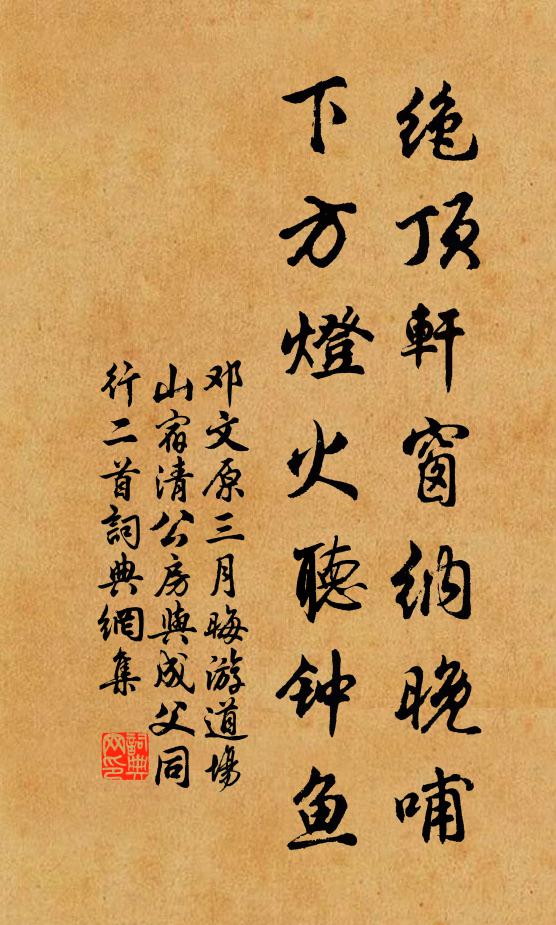 绝顶軒窗纳晚哺
下方燈火聽钟鱼
邓文原三月晦游道場
山宿清公房與成父同
行二首詞典網集
詞典网印